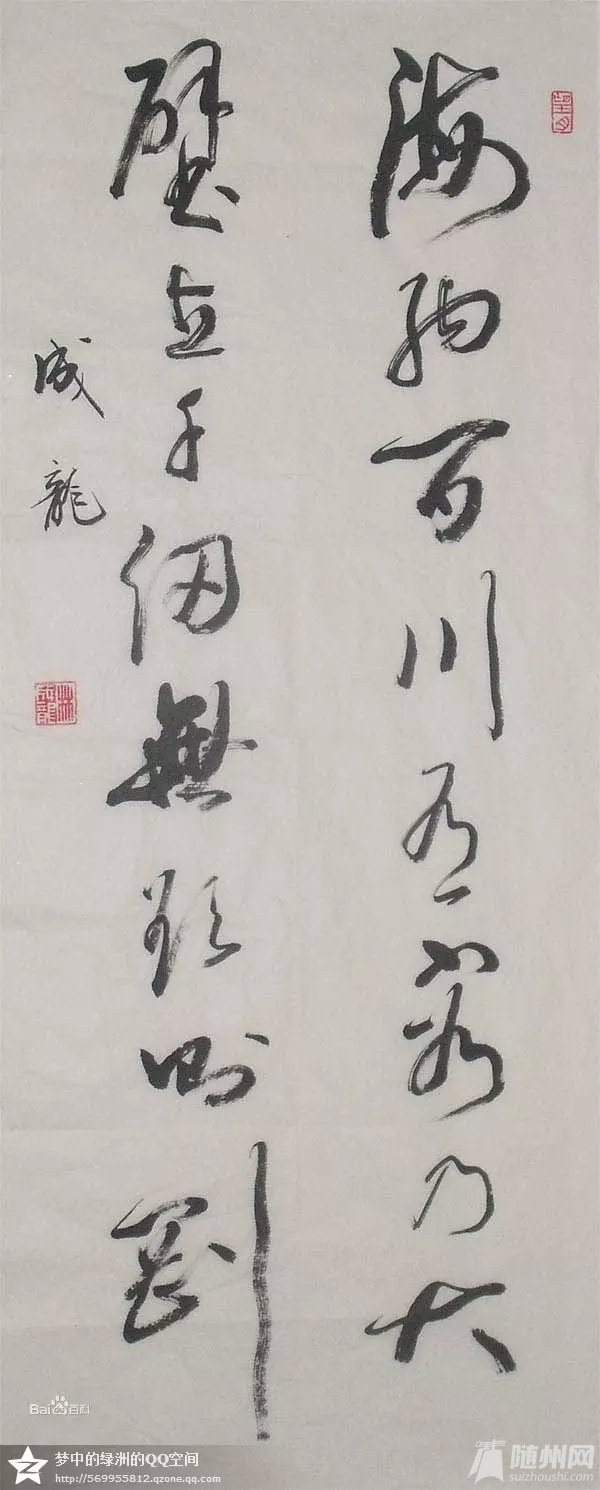 海納百川有容乃大
壁立千仞無欲則剛
成龍
Bai百科
梦中的绿洲的QQ空间
http://569955812.qzone.qq.com
随州网
suizhoushi.com